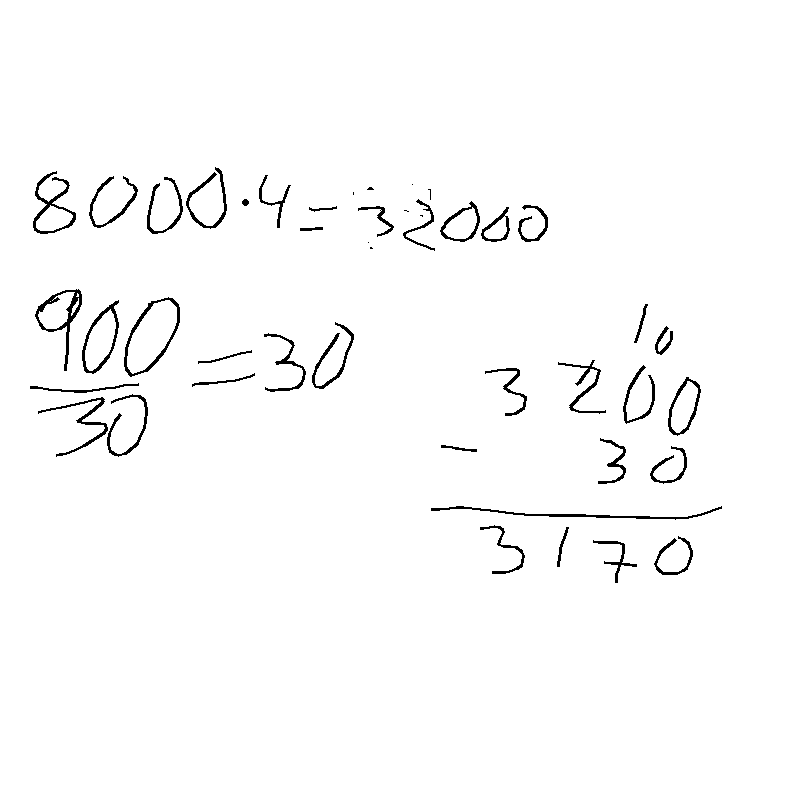 8000·4=32000
900
30
=30
10
3200
- 30
3170